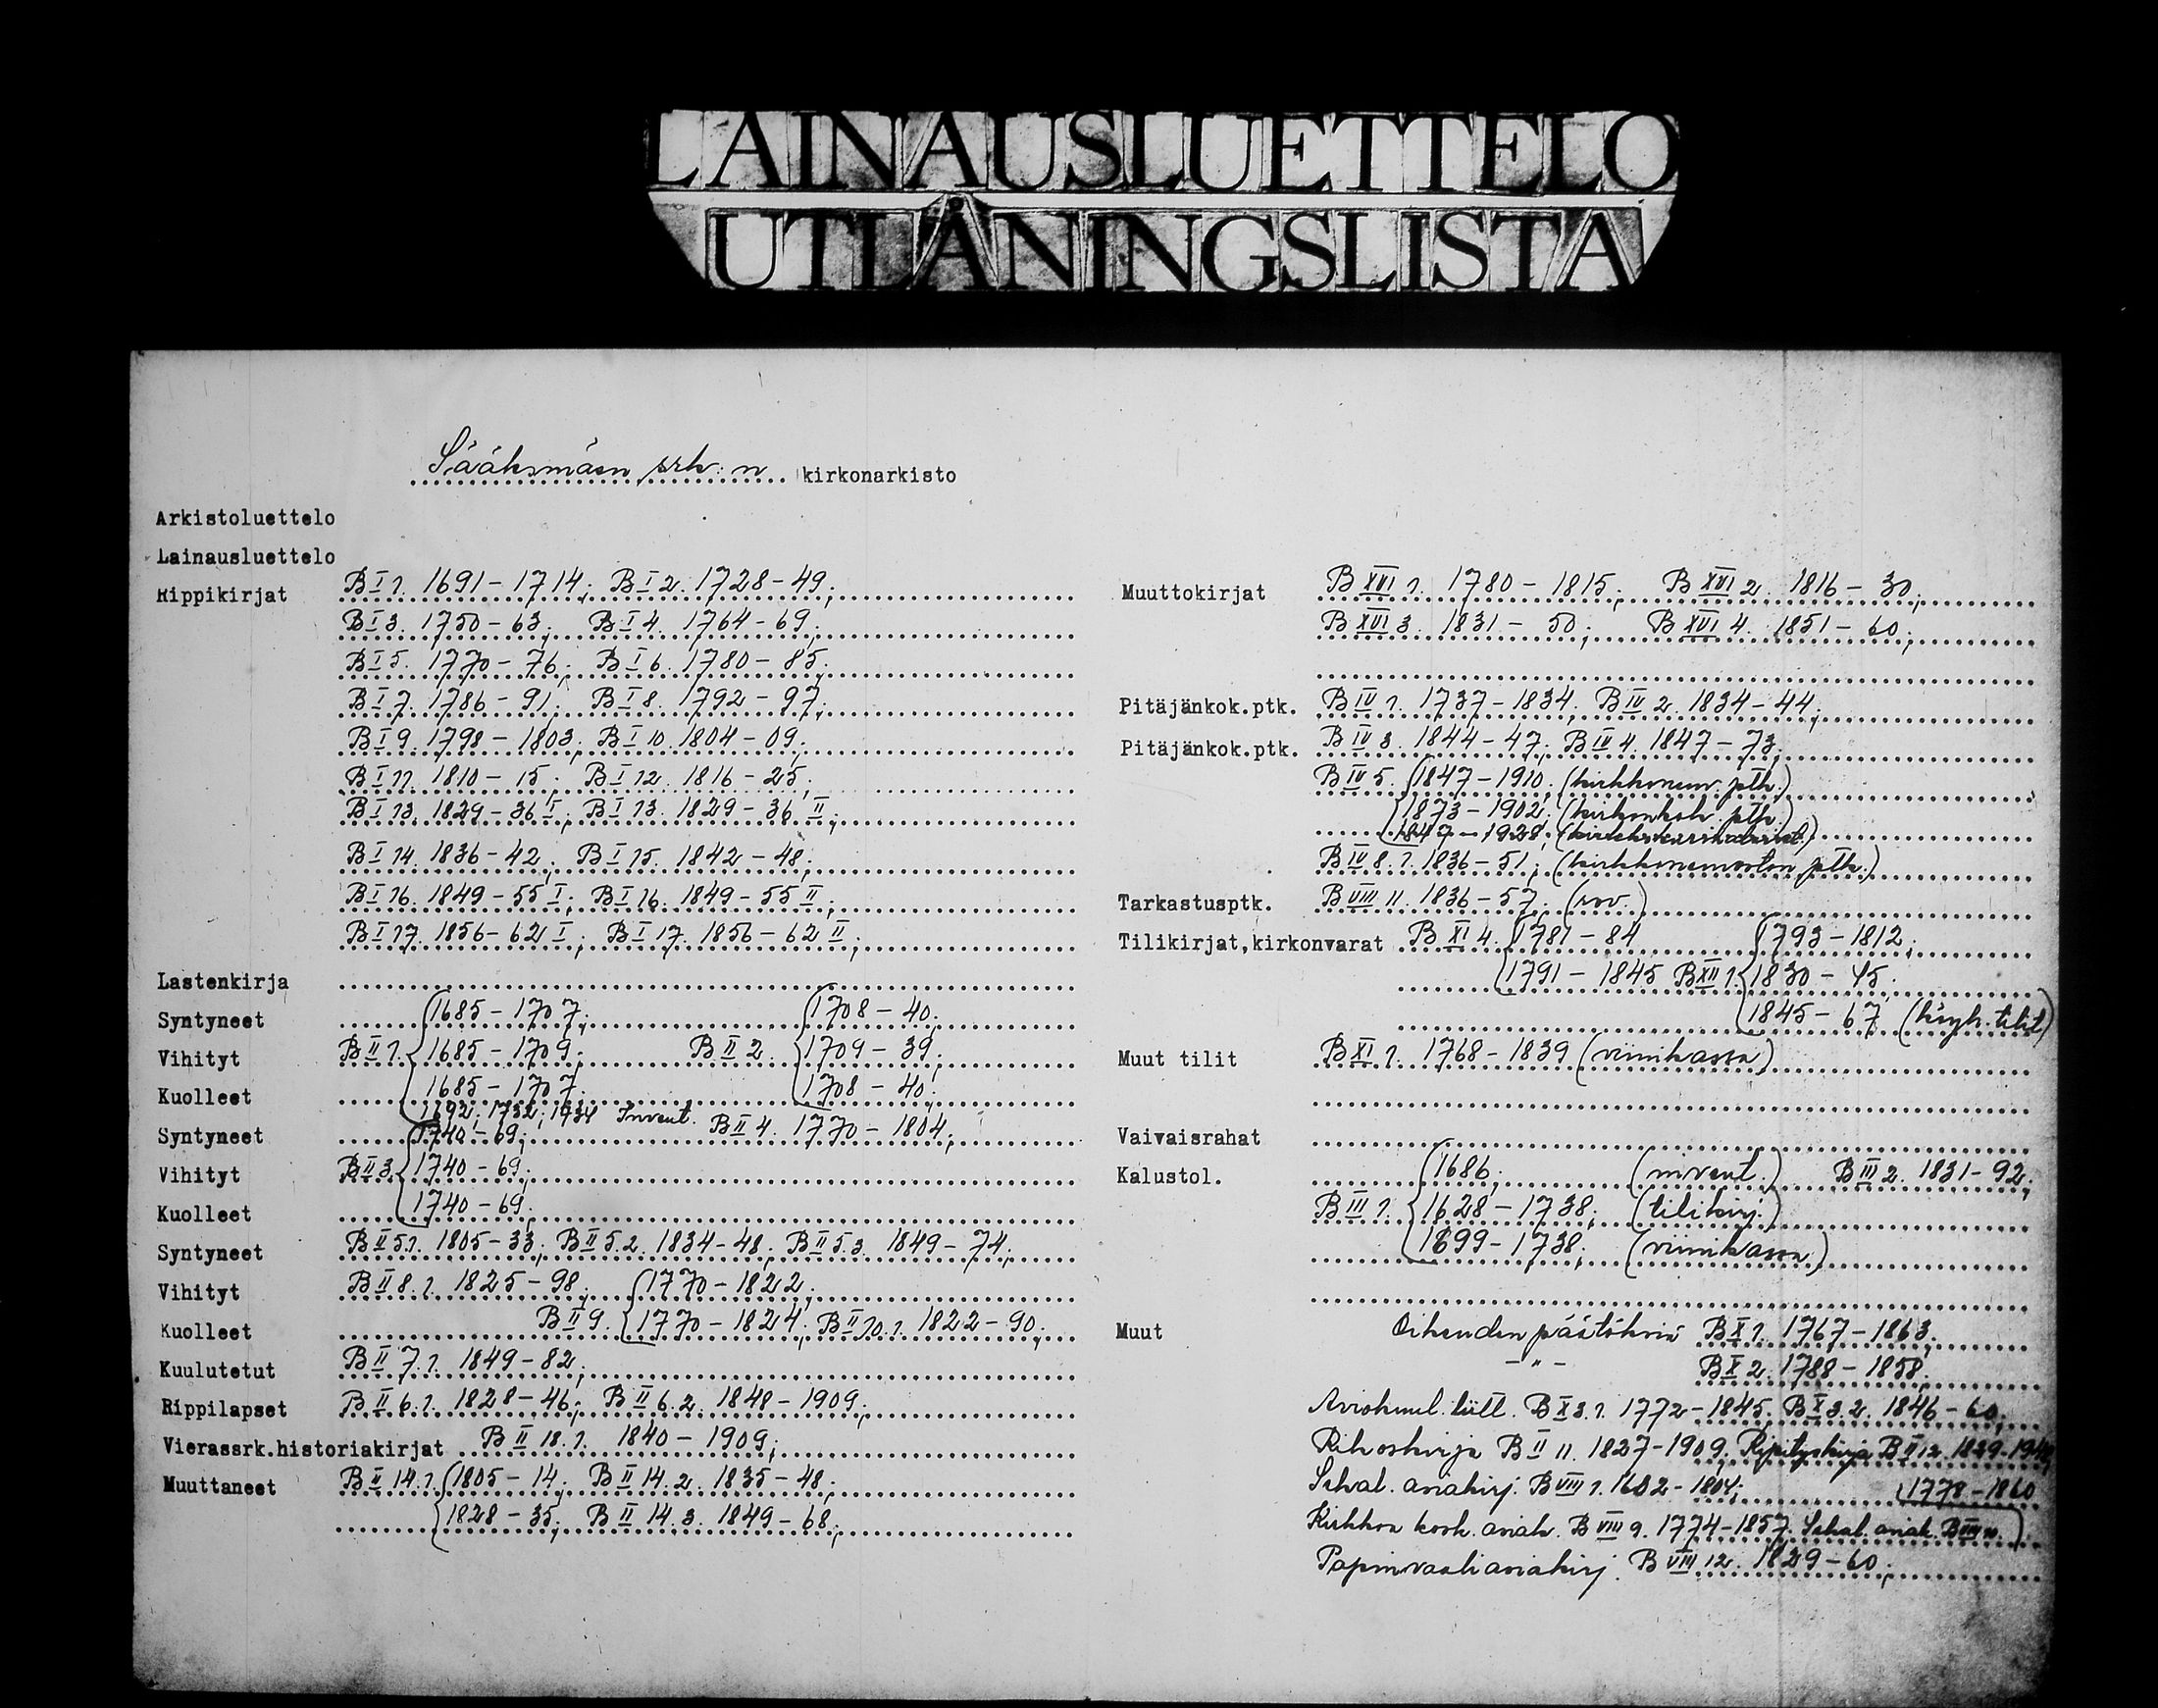 LAINAUSLUETTELO
UTLÅNINGSLISTA
Sääksmäen srk:n kirkonarkisto
Arkistoluettelo
Lainausluettelo
Rippikirjat B I 1. 1691-1714; B I 2. 1728-49;
B I 3. 1750-63; B I 4. 1764-69;
B I 5. 1770-76; B I 6. 1780-85;
B I 7. 1786-91; B I 8. 1792-97;
B I 9. 1798-1803; B I 10. 1804-09;
B I 11. 1810-15; B I 12. 1816-25;
B I 13. 1829-36 I; B I 13. 1829-36 II;
B I 14. 1836-42; B I 15. 1842-48;
B I 16. 1849-55 I; B I 16. 1849-55 II;
B I 17. 1856-62 I; B I 17. 1856-62 II;
Lastenkirja
Syntyneet 1685-1707; 1708-40;
Vihityt B II 1. 1685-1709; B II 2. 1709-39;
Kuolleet 1685-1707. 1708-40;
1692; 1732; 1734 Invent.
Syntyneet 1740-69; B II 4. 1770-1804;
Vihityt B II 3. 1740-69;
Kuolleet 1740-69;
Syntyneet B II 5.1. 1805-33; B II 5.2. 1834-48; B II 5.3. 1849-74;
Vihityt B II 8.1. 1825-98; 1770-1822;
Kuolleet B II 9. 1770-1824; B II 10.1. 1822-90;
Kuulutetut B II 7.1. 1849-82;
Rippilapset B II 6.1. 1828-46; B II 6.2. 1848-1909;
Vierassrk.historiakirjat B II 18.1. 1840-1909;
Muuttaneet B II 14.1. 1805-14; B II 14.2. 1835-48;
1828-35; B II 14.3. 1849-68;
Muuttokirjat B XVI 1. 1780-1815; B XVI 2. 1816-30;
B XVI 3. 1831-50; B XVI 4. 1851-60;
Pitäjänkok.ptk. B IV 1. 1737-1834; B IV 2. 1834-44;
Pitäjänkok.ptk. B IV 3. 1844-47; B IV 4. 1847-73;
B IV 5. 1847-1910; (kirkkoneuv. ptk.)
1873-1902; (kirkonkok. ptk.)
1847-1928;
B IV 8.1. 1836-51; (kirkkoneuvoston ptk.)
Tarkastusptk. B VIII 11. 1836-57; (rov.)
Tilikirjat,kirkonvarat B XI 4. 1781-84 1793-1812;
1791-1845 B XII 1. 1830-45;
1845-67 (köyh. tilit)
Muut tilit B XI 1. 1768-1839 (viinikassa)
Vaivaisrahat
Kalustol. 1686; (invent.) B III 2. 1831-92;
B III 1. 1628-1738; (tilikirj.)
1699-1738; (viinikassa)
Muut Oikeuden päätöksiä B X 1. 1767-1863;
-"- B X 2. 1788-1858;
Aviokuul. luett. B X 3.1. 1772-1845; B X 3.2. 1846-60;
Rikoskirja B II 11. 1827-1909; Ripityskirja B II 12. 1839-
Sekal. asiakirj. B VIII 1. 1602-1804; 1778-1860
Kirkkoa kosk. asiak. B VIII 9. 1774-1857; Sekal. asiak. B VIII 10.
Papinvaaliasiakirj. B VIII 12. 1829-60;